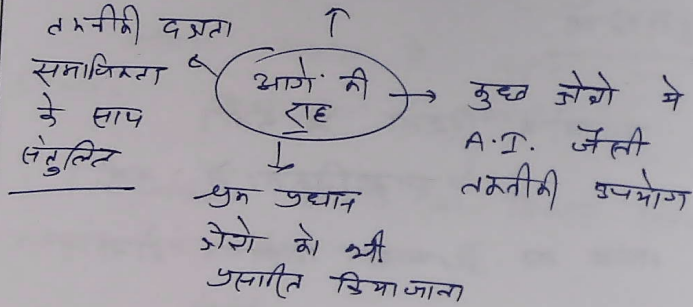 तकनीकी दक्षता
समाजिकता
के साथ
संतुलित
आगे की
राह
कुछ क्षेत्रो मे
A.I. जैसी
तकनीकी उपयोग
श्रम प्रधान
क्षेत्रो को भी
प्रसारित किया जाना